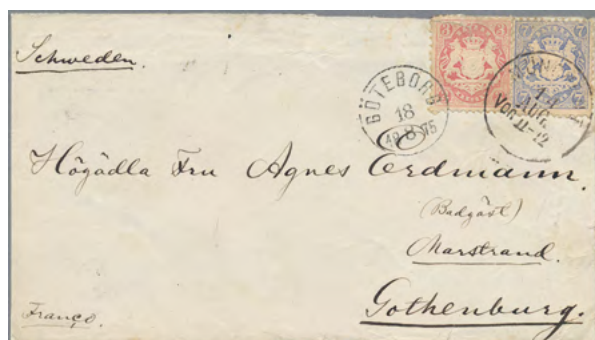 Schweden.
3 3
7 7
GÖTEBORG
18
8
75
AUG.
VOR. 11-12
Högädla Fru Agnes Erdmann.
(Badgäst)
Marstrand.
Gothenburg.
Franço.